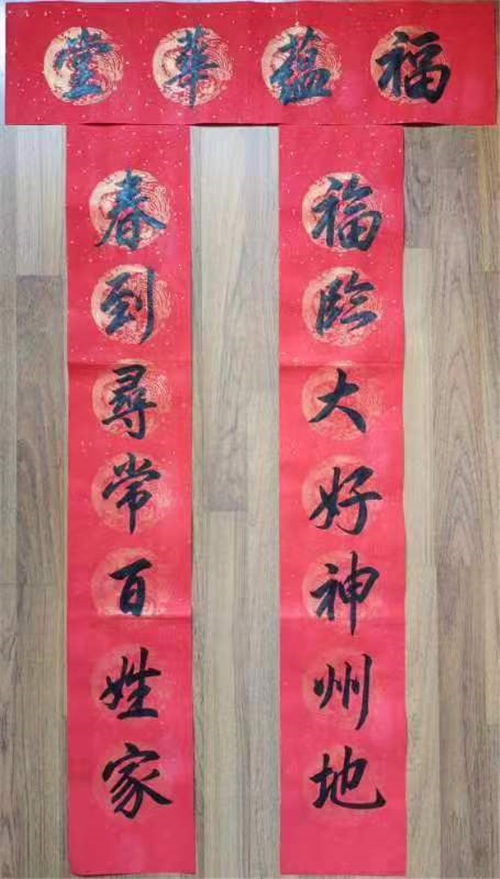 福蕴華堂
福臨大好神州地
春到尋常百姓家